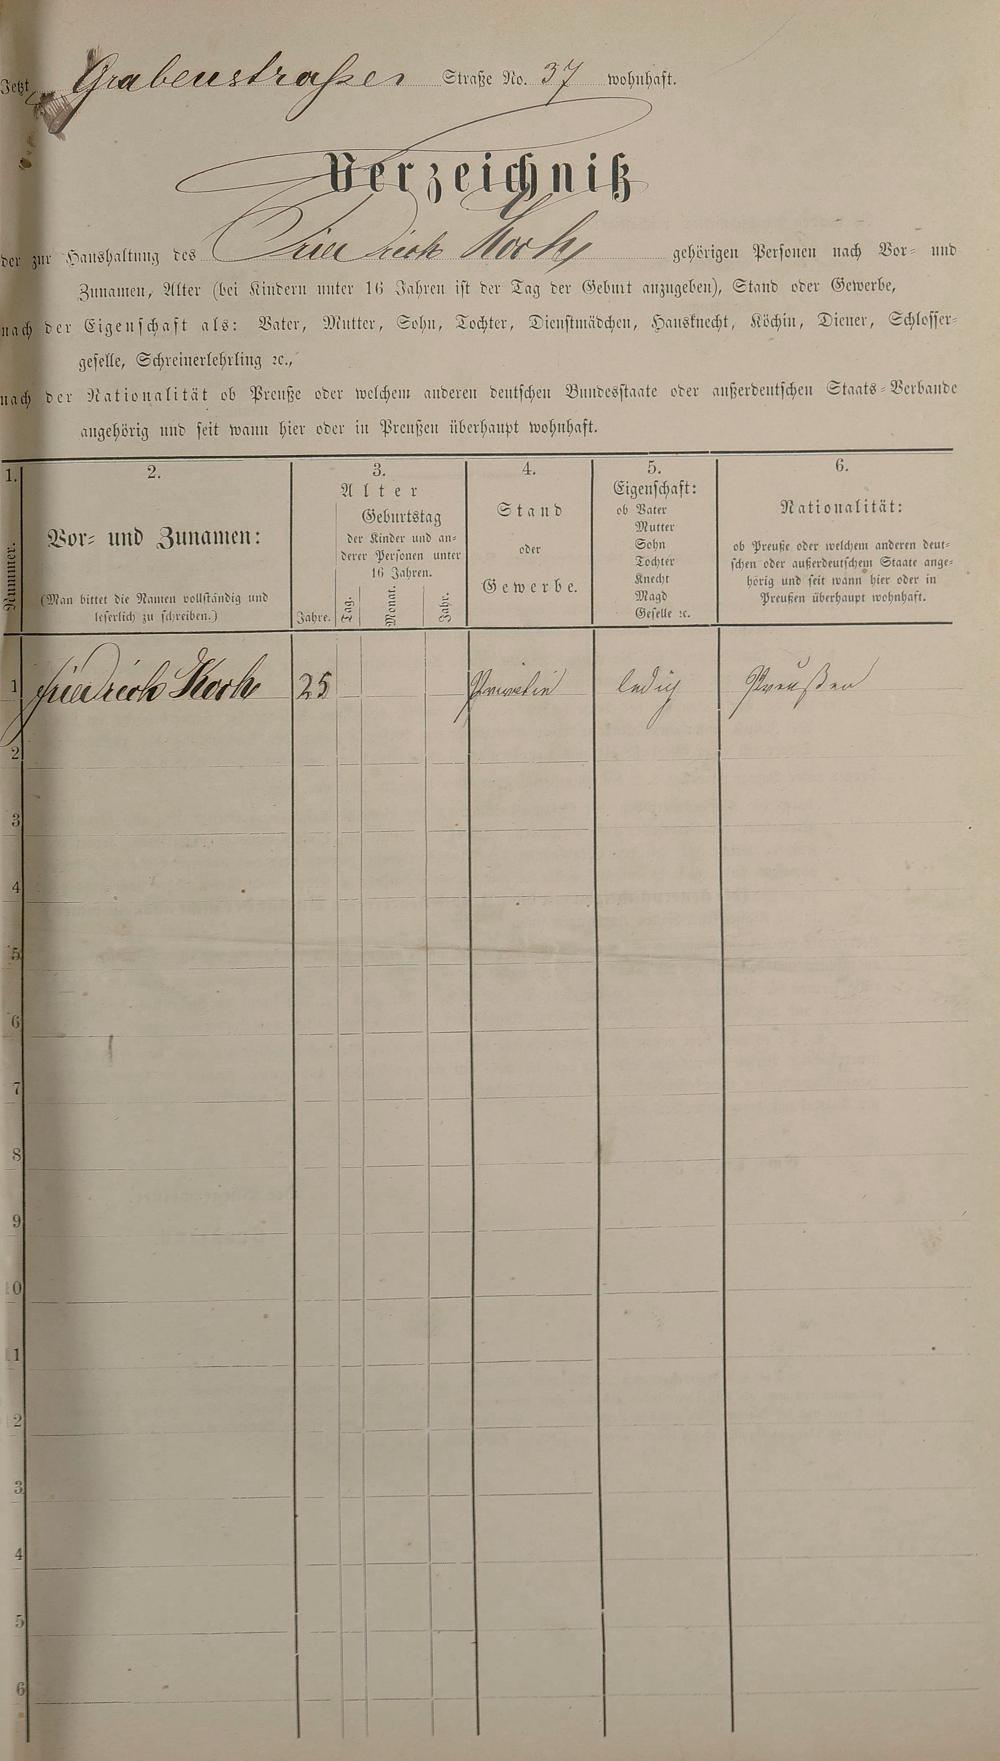 Jetzt Grabenstraßer Straße No. 37 wohnhaft.
Verzeichniß
der zur Haushaltung des Friedrich Koch gehörigen Personen nach Vor- und
Zunamen, Alter (bei Kindern unter 16 Jahren ist der Tag der Geburt anzugeben), Stand oder Gewerbe,
nach der Eigenschaft als: Vater, Mutter, Sohn, Tochter, Dienstmädchen, Hausknecht, Köchin, Diener, Schlosser-
geselle, Schreinerlehrling ꝛc.,
nach der Nationalität ob Preuße oder welchem anderen deutschen Bundesstaate oder außerdeutschen Staats-Verbande
angehörig und seit wann hier oder in Preußen überhaupt wohnhaft.
1.
Nummer.
2.
Vor- und Zunamen:
(Man bittet die Namen vollständig und
leserlich zu schreiben.)
3.
Alter
Jahre.
Geburtstag
der Kinder und an-
derer Personen unter
16 Jahren.
Tag.
Monat.
Jahr.
4.
Stand
oder
Gewerbe.
5.
Eigenschaft:
ob Vater
Mutter
Sohn
Tochter
Knecht
Magd
Geselle ꝛc.
6.
Nationalität:
ob Preuße oder welchem anderen deut-
schen oder außerdeutschem Staate ange-
hörig und seit wann hier oder in
Preußen überhaupt wohnhaft.
1 Friedrich Koch 25 ledig Preußen
2
3
4
5
6
7
8
9
10
11
2
3
4
5
6